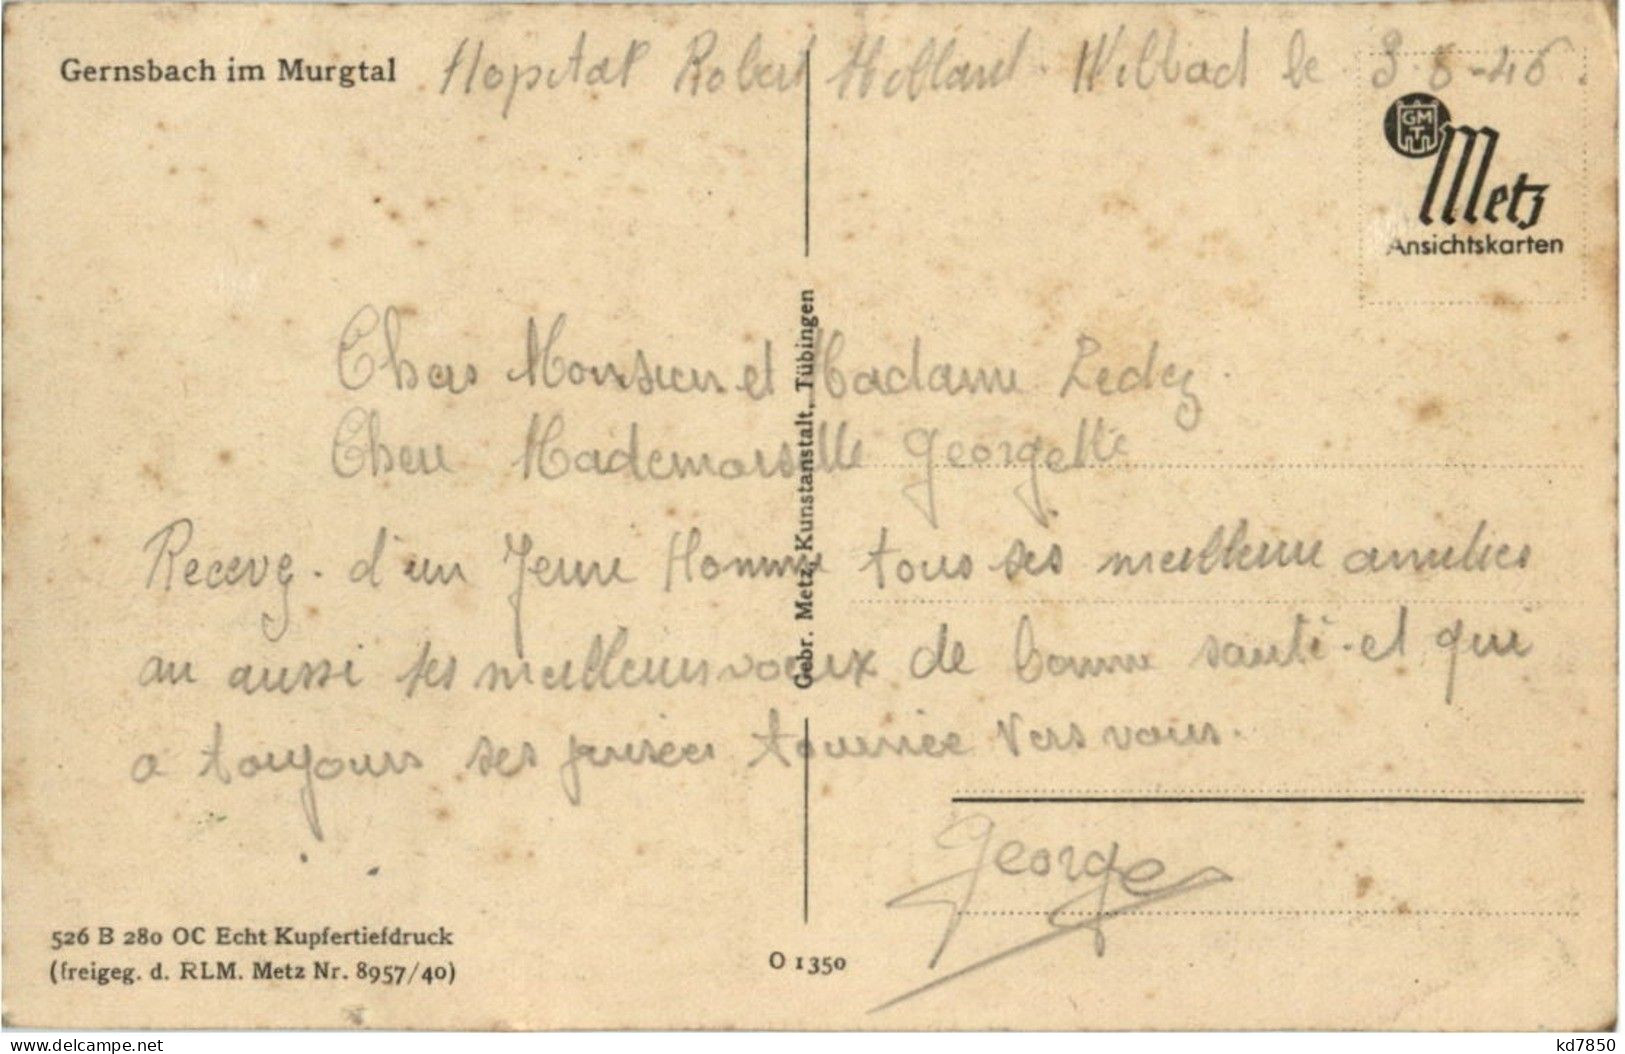 Gernsbach im Murgtal
Hopital Robert Wilbad le 3-8-46.
GMT
Metz
Ansichtskarten
Chers Monsieur et Madame Ledez.
Chere Mademoiselle Georgette
Recevez. d'un Jeune Homme tous ses meilleure amities
au aussi ses meilleurs voeux de bonne santé. et qui
a toujours ses pensées tournée vers vous.
George
Gebr. Metz, Kunstanstalt, Tübingen
526 B 280 OC Echt Kupfertiefdruck
(freigeg. d. RLM. Metz Nr. 8957/40)
O 1350
kd7850
delcampe.net